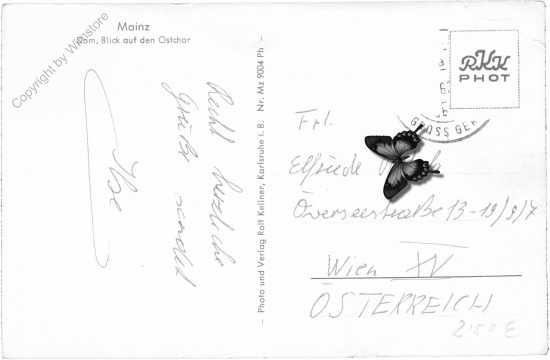 Mainz
Dom, Blick auf den Ostchor
Copyright by Wimstore
Recht herzliche
Grüße sendet
Ilse
– Photo und Verlag Rolf Kellner, Karlsruhe i. B. Nr. Mz 9004 Ph –
RKK
PHOT
GROSS GER
Frl.
Elfriede
Överseestraße 13-19/5/7
Wien XV
ÖSTERREICH
2'50 E